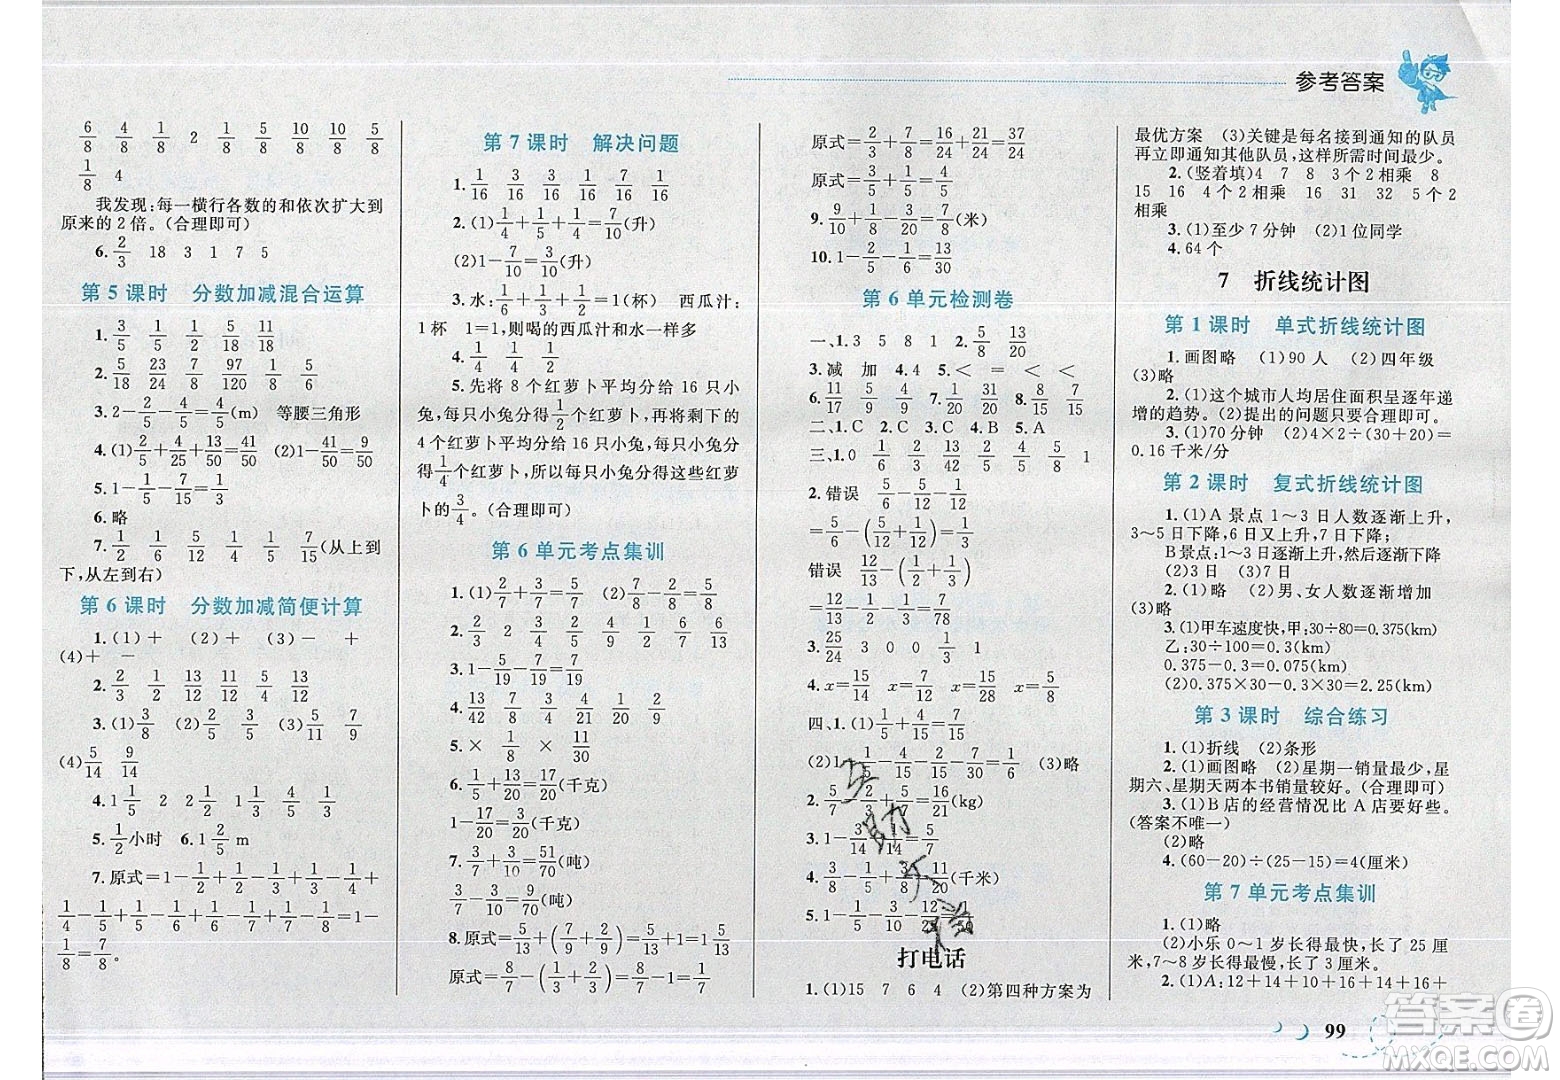 参考答案
6/8 4/8 1/8 2 1/8 5/8 10/8 10/8 5/8
1/8 4
我发现:每一横行各数的和依次扩大到
原来的2倍。(合理即可)
6. 2/3 18 3 1 7 5
第5课时 分数加减混合运算
1. 3/5 1/5 1/2 5/18 11/18
2. 5/18 23/24 7/8 97/120 1/8 5/6
3. 2-2/5-4/5=4/5(m) 等腰三角形
4. (1)2/5+4/25+13/50=41/50 (2)1-41/50=9/50
5. 1-1/5-7/15=1/3
6. 略
7. 1/2 1/6 5/12 1/4 1/3 7/15(从上到
下,从左到右)
第6课时 分数加减简便计算
1. (1)+ (2)+ (3)- +
(4)+ -
2. 2/3 1/2 13/15 9/14 13/12
3. (1)3/8 (2)4/9 (3)5/11 7/11
(4)5/14 9/14
4. 1 1/5 2 2 1/2 1 3/8 2/11
5. 1/2小时 6. 1 2/5 m
7. 原式=1-1/2+1/2-1/3+1/3-1/4+
1/4-1/5+1/5-1/6+1/6-1/7+1/7-1/8=1-
1/8=7/8。
第7课时 解决问题
1. 1/16 3/16 1/16 7/16 1/16
2. (1)1/4+1/5+1/4=7/10(升)
(2)1-7/10=3/10(升)
3. 水:1/6+1/3+1/2=1(杯) 西瓜汁:
1杯 1=1,则喝的西瓜汁和水一样多
4. 1/4+1/4=1/2
5. 先将8个红萝卜平均分给16只小
兔,每只小兔分得1/2个红萝卜,再将剩下的
4个红萝卜平均分给16只小兔,每只小兔分
得1/4个红萝卜,所以每只小兔分得这些红萝
卜的3/4。(合理即可)
第6单元考点集训
1. (1)2/7+3/7=5/7 (2)5/7-2/7=3/7
2. 2/3 2 3/4 1/4 6/5 6/7
3. 1-5/19-7/19=7/19
4. 13/42 5/8 7/9 1/3
5. × 1/8 × 11/30
6. 1/5+13/20=17/20(千克)
1-17/20=3/20(千克)
7. 3/7+3/10=51/70(吨)
3/7-1/10-1/10=8/35(吨)
8. 原式=5/13+(7/9+2/9)+8/13=1+1=2
原式=8/7-(1/7+5/13+8/13)=8/7-8/7=0
原式=2/3+7/8=16/24+21/24=37/24
原式=4/5+5/6-4/5=5/6
9. 9/10+9/10-3/8=57/40(米)
10. 1-1/8-3/8=1/2
第6单元检测卷
一、1. 3 5 8 1 2. 5/8 13/20
3. 减 加 4. 4 5. < = < <
6. 11/17 5/9 4/9 7. 1/20 31/20 8. 8/15 7/15
二、1. C 2. C 3. C 4. B 5. A
三、1. 0 1/6 2/3 13/42 4/5 5/6 5/8 1
2. 错误 5/6-5/12-1/12
=5/6-(5/12+1/12)=1/3
错误 12/13-(1/6+12/13)
=12/13-12/13-1/6
3. 25/24 3 0 0 1/3
4. x=15/14 x=15/28 x=5/8
四、1. (1)1/5+4/15=7/15
(2)1-1/5-4/15-2/15-7/30=1/6 (3)略
2. 5/7-2/3+5/7=16/21(kg)
3. 1-3/14-1/14=5/7
4. 1-1/4-1/5=11/20(千米)
打电话
1. (1)15 7 6 4 (2)第四种方案为
最优方案 (3)关键是每名接到通知的队员
再立即通知其他队员,这样所需时间最少。
2. (竖着填)4 7 8 3个2相乘 8
15 16 4个2相乘 16 31 32 5个2
相乘
3. (1)至少7分钟 (2)1位同学
4. 64个
7 折线统计图
第1课时 单式折线统计图
1. 画图略 (1)90人 (2)四年级
(3)略
2. (1)这个城市人均居住面积呈逐年递
增的趋势。(2)提出的问题只要合理即可。
3. (1)70分钟 (2)4×2÷(30+20)=
0.16千米/分
第2课时 复式折线统计图
1. (1)A景点1~3日人数逐渐上升,
3~5日逐渐下降,6日又上升,7日下降
B景点:1~3日逐渐上升,然后逐渐下降
(2)3日 (3)7日
2. (1)逐渐上升 (2)男、女人数增加
(3)略
3. (1)甲车速度快,甲:30÷80=0.375(km)
乙:30÷100=0.3(km)
0.375-0.3=0.075(km)
(2)0.375×30-0.3×30=2.25(km)
第3课时 综合练习
1. (1)折线 (2)条形
2. (1)画图略 (2)星期一销量最少,星
期六、星期天两本书销量较好。(合理即可)
3. (1)B店的经营情况比A店要好些。
(答案不唯一)
(2)略
4. (60-20)÷(25-15)=4(厘米)
第7单元考点集训
1. (1)略
(2)小乐0~1岁长得最快,长了25厘
米,7~8岁长得最慢,长了3厘米。
2. (1)A:12+14+16+16+
99
答案圈
MXQE.COM